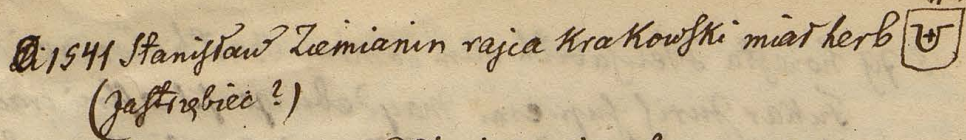 1541 Stanisław Ziemianin rajca Krakowski miał herb
(Jastrzębiec?)